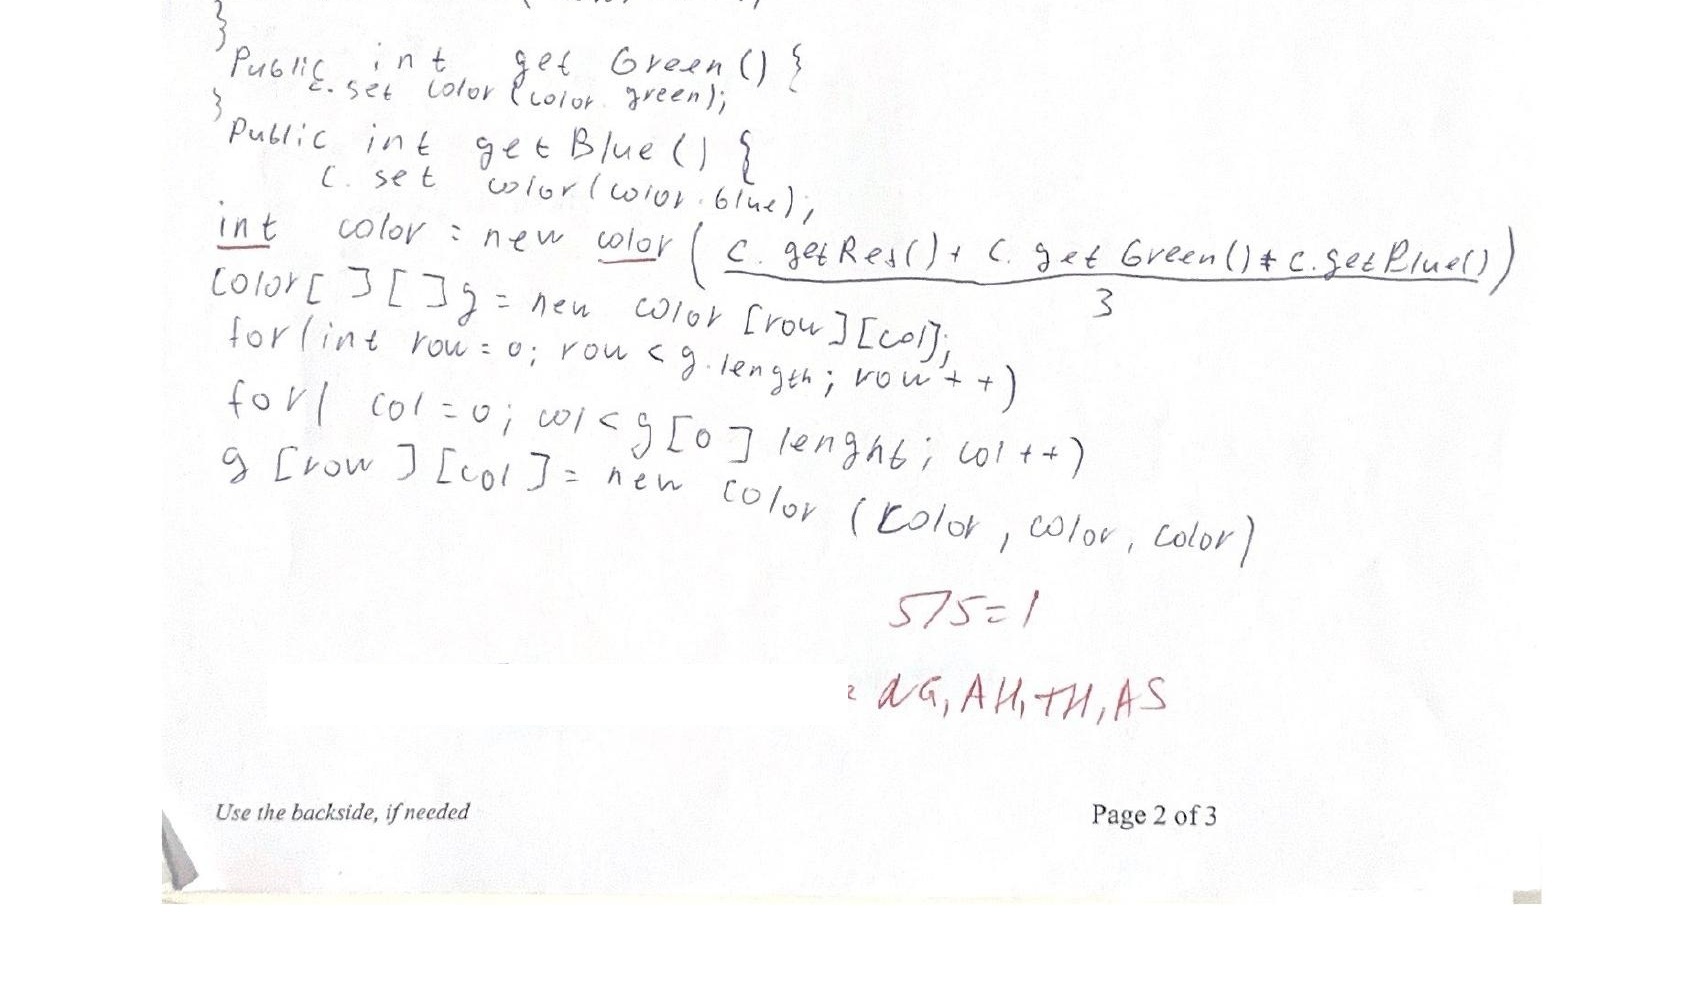 }
Public int get Green () {
c. set color (color. green);
}
Public int get Blue () {
c. set color (color. blue);
int color = new color ( c. getRes() + c. get Green() + c. getBlue() )
3
Color [ ] [ ] g = new color [row] [col];
for (int row = 0; row < g. length; row + +)
for ( col = 0; col < g [0] lenght; col + +)
g [row] [col] = new color (color, color, color)
575=1
AH, TH, AS
Use the backside, if needed
Page 2 of 3